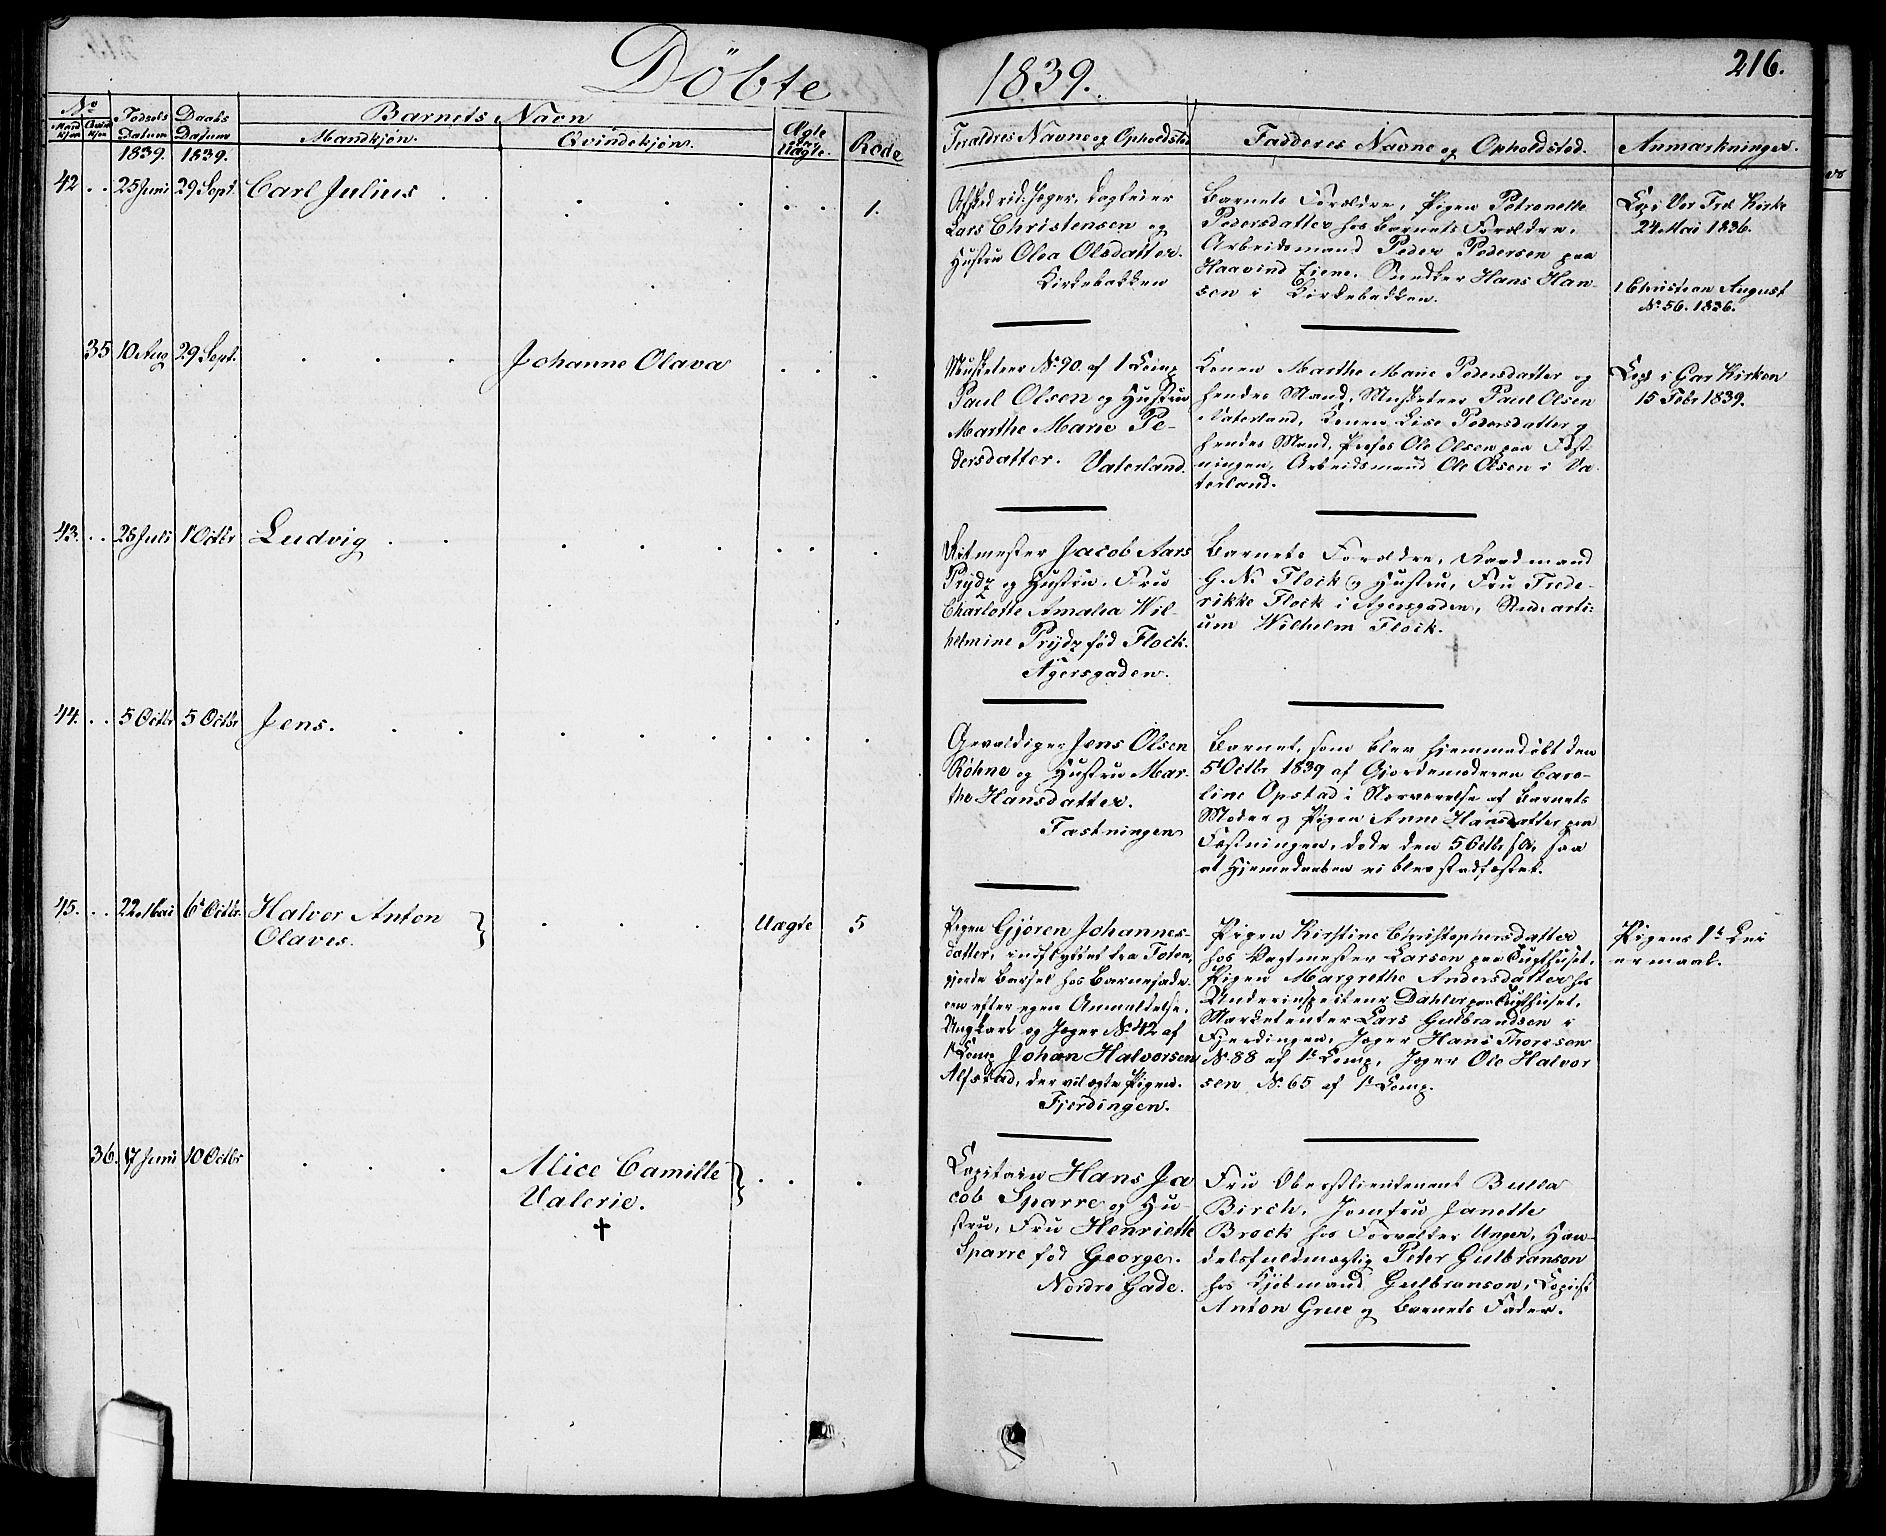 Döbte
1839.
216.
No
Mandkjøn
Qvindekjøn
Fødsels Datum
Daabs Datum
Barnets Navn
Mandkjøn.
Qvindekjøn.
Ægte
Uægte.
Rode
Foraldres Navne og Opholdsted
Fadderes Navne og Opholdsted.
Anmærkninger.
1839.
1839.
42
25 Juni
29 Sept.
Carl Julius
1.
Lars Christensen og
Hustru Olea Olsdatter.
Kirkebakken
Barnets Forældre, Pigen Petronelle
Pedersdatter hos Barnets Forældre,
Arbeidsmand Peder Pedersen paa
Haavind Eiene, Snedker Hans Han-
sen i Kirkebakken.
Cop i Vor Frels Kirke
24 Mai 1836.
1 Christian August
No 56. 1836.
35
10 Aug
29 Sept.
Johanne Olava
Musketeer No 90. af 1 Comp
Paul Olsen og Hustru
Marthe Marie Pe-
dersdatter. Vaterland.
Konen Marthe Marie Pedersdatter og
hendes Mand, Musketeer Paul Olsen
Vaterland, Konen Lise Pedersdatter og
hendes Mand, Profos Ole Olsen paa Fæst-
ningen, Arbeidsmand Ole Olsen i Va-
terland.
Cop i Gar Kirken
15 Febr 1839.
43.
1 Octbr
Ludvig
Ritmester Jacob Aars
Prydz og Hustru, Fru
Charlotte Amalia Wil-
helmine Prydz fød Flock.
Agersgaden.
Barnets Forældre, Kaadmand
G. N. Flock og Hustru, Fru Frede-
rikke Flock i Agersgaden, Stud: arti-
um Wilhelm Flock.
44.
5 Octbr
5 Octbr
Jens.
Gevaldiger Jens Olsen
Røhne og Hustru Mar-
the Hansdatter.
Fæstningen
Barnet, som blev hjemmedøbt den
5 Octbr 1839 af Gjordemoderen Caro-
line Opstad i Nærværelse af Barnets
Moder og Pigen Anne Hansdatter paa
Fæstningen, døde den 5 Octbr s. A. saa
at Hjemmedaaben ei blev stadfæstet.
45.
22 Mai
6 Octbr.
Halvor Anton
Olaves.
Uægte
5
Pigen Gjøren Johannes-
datter, indflyttet fra Toten,
gjorde Barsel hos Barnefade-
ren efter egen Anmeldelse.
Ungkarl og Jæger No 42 af
1 Comp Johan Halvorsen
Alfstad, der vil ægte Pigen.
Fjerdingen.
Pigen Kirstine Christophersdatter
hos Vagtmester Larsen paa Tugthuset,
Pigen Margrethe Andersdatter hos
Underinspecteur Dahler paa Tugthuset,
Marketenter Lars Gulbrandsen i
Fjerdingen, Jæger Hans Thoresen
No 88 af 1 Comp, Jæger Ole Halvor
sen No 65 af 1 Comp.
Pigens 1ste Lei
ermaal.
36.
17 Juni
10 Octbr
Alice Camille
Valerie.
Capitain Hans Ja
cob Sparre og Hu-
stru, Fru Henriette
Sparre fød George.
Nordre Gade.
Fru Oberstlieutenant Bulla
Birch, Jomfru Janette
Brock hos Forvalter Unger, Han-
delsfuldmægtig Peter Gulbranson
hos Kjøbmand Gulbranson, Copiist
Anton Grue og Barnets Fader.